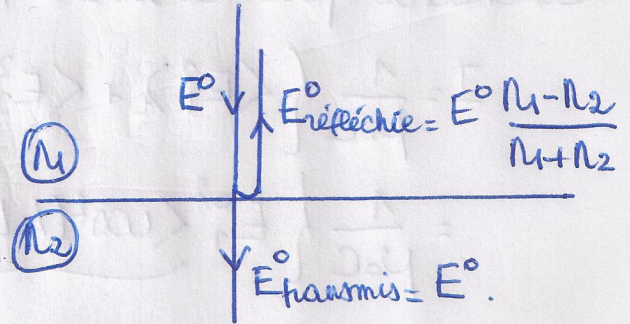 E° E°réfléchie = E° n1-n2
n1+n2
n1
n2
E°transmis = E°.